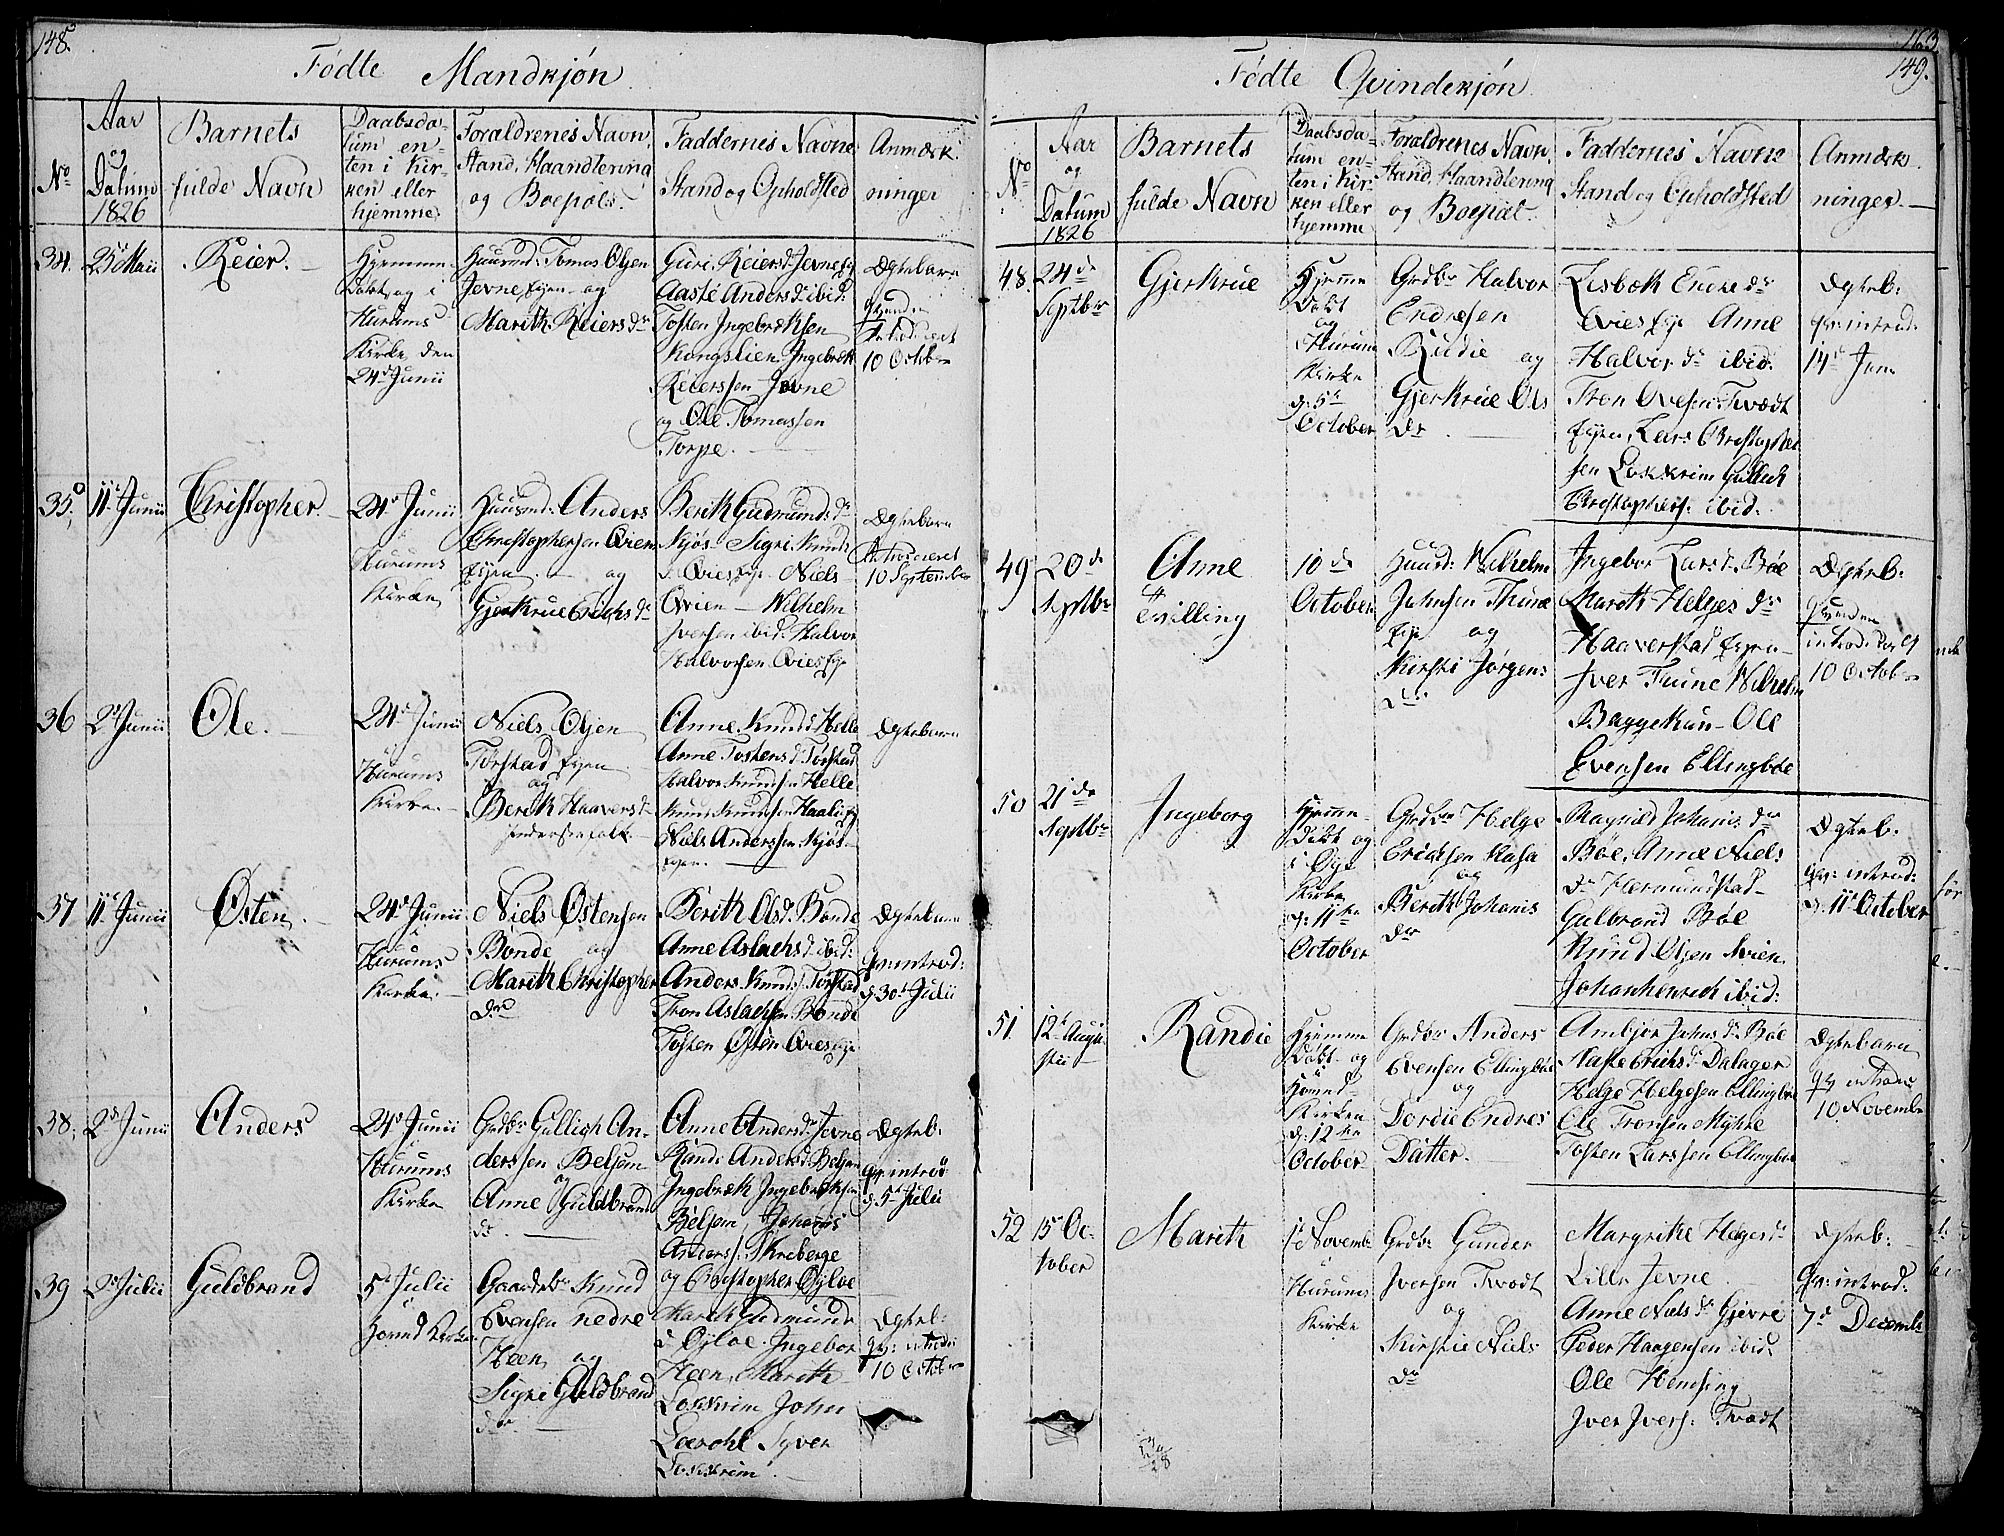 148.
Födte Mandkjön
No
Aar
og
Datum
1826
Barnets
fulde Navn
Daabsda-
tum en-
ten i Kir-
ken eller
hjemme.
Foraldrenes Navn,
Stand, Haandtering
og Boepæls.
Faddernes Navne
Stand og Opholdsted
Anmærk-
ninger
34.
23de Maii
Reier.
Hjemme-
Døbt og i
Hurums
Kirke den
24de Junii
Huusmd. Tomas Olsen
Jevne Ejen og
Marith Reiersdr
Guri Reiersdr Jevne
Aaste Andersdr ibid:
Tosten Ingebrektsen
Kongslien Ingebrekt
Reierssen Jevne
og Ole Tomassen
Torpe.
Ægtebarn
qvinden
introduceret
10 Octobr
35.
11te Junii
Christopher.
24de Junii
Hurums
Kirke
Huusmd. Anders
Christophersen Qvien
Ejen og
Gjertrue Erichsdr
Berith Gudmundsdr
Skjøs Sigri Knuds
dr Qvies Eje Niels
Qvien Wilhelm
Iversen ibid: Halvor
Halvorsen Qvies Eje
Ægtebarn
Introduceret
10 September
36
2de Junii
Ole.
24de Junii
i
Hurums
Kirke.
Niels Olsen
Tørstad Ejen
og
Berith Haaversdr
Anne Knudsdr Helle
Anne Tostensdr Tørstad
Halvor Knudsen Helle
Knud Knudsen
Niels Anderssen Skjøs
Ejen.
Ægtebarn
37
11te Junii
Østen.
24de Junii
i
Hurums
Kirke.
Niels Østensen
Bønde og
Marith Christopher
dr
Berith Olsdr Bønde
Anne Aslachsdr ibid:
Anders Knuds: Tørstad
Tron Aslachsen Bønde
Tosten Østen Qvies Eje
Ægtebarn
qv: introd:
d: 30te Julii
38.
2de Junii
Anders
24de Junii
Hurums
Kirke
Grdbr Gullich An-
derssen Belsem
og
Anne Guldbrands
dr.
Anne Andersdr Jevne
Rande Andersdr Belsem
Ingebrekt Ingebrektsen
Belsem, Johanis
Anders: Skreberge
og Christopher Øjloe
Ægteb:
qv: introd:
d: 5te Julii
39
2de Julii
Guldbrand
5te Julii
i
Hørnd Kirke
Gaardbr Knud
Evensen nedre
Heen, og
Sigri Guldbrands
dr.
Marith Gudmunds
dr Øjloe. Ingebor
Heen, Marith
Lokkrim John
Syver
Lokkrim.
Ægteb:
qv: introd:
10 Octobr
163
149.
Födte Qvindekjön.
No
Aar
og
Datum
1826
Barnets
fulde Navn
Daabsda-
tum en-
ten i Kir-
ken eller
hjemme
Foraldrenes Navn,
Stand, Haandtering
og Boepæl.
Faddernes Navne
Stand og Opholdsted
Anmærk-
ninger.
48.
24de
Septbr
Gjertrue
Hjemme
Døbt
og
i Hurums
Kirke
d: 5te
October
Grdbr Halvor
Endresen
Rudie og
Gjertrue Ols
dr
Lisbeth Endresdr
Qvies Eje Anne
Halvorsdr ibid.
Tron Ovesen Tvedt
Ejen, Lars Christopher
sen Lokkrim Gullich
Christophers: ibid.
Ægteb:
qv: introd:
14de Jan.
49
20de
Septbr
Anne
Tvilling
10de
October
Huusmd: Wilhelm
Johnsen Thune
Eje og
Kirsti Jørgens
dr
Ingebor Larsdr Bøe
Marith Helgesdr
Haaverstad Ejen
Iver Tuine Wilhelm
Baggethun Ole
Evensen Ellingbøe
Ægteb:
qvinden
introd:
10 Octobr
50
21de
Septbr
Ingeborg
Hjemme-
Døbt og
i Øje
Kirke
d: 11te
October
Grdbr Helge
Erichsen Kasa
og
Berith Johanis
dr
Ragnild Johanisdr
Bøe, Anne Niels
dr Hermundstad
Gulbrand Bøe
Knud Olsen Kvien
Johan Henrich ibid:
Ægteb:
qv: introd:
d: 11te October
51.
12te Augu-
stii
Randie
Hjemme
Døbt og
i
Hørnd
Kirken
d: 12te
October
Grdbr Anders
Evensen Ellingbøe
og
Dordie Endres
Datter.
Ambjør Johnsdr Bøe
Aaste Erichsdr Dalager
Helge Helgesen Ellingbøe
Ole Tronsen Mykke
Tosten Larssen Ellingbøe
Ægtebarn
qv introd:
10 Novembr
52
15de Oc-
tober
Marith
1te Novembr
Hurums
Kirke
Grdbr Gunder
Iversen Tvedt
og
Kirstie Niels
dr
Margrethe Helgesdr
Lille Jevne.
Anne Nielsdr Gjevre
Peder Haagensen ibid.
Ole Hemsing
Iver Ivers: Tvedt
Ægteb:
qv: introd:
7de Decembr